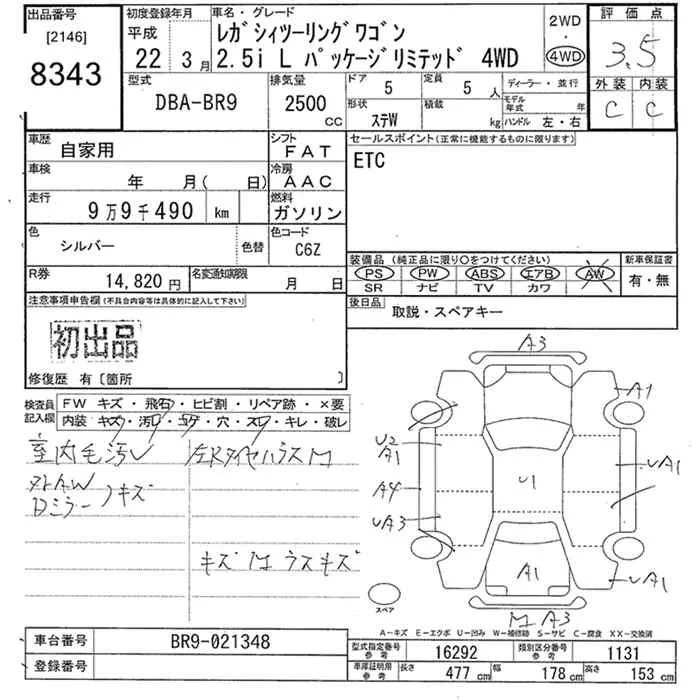 出品番号
[2146]
8343
初度登録年月
平成
22 3月
車名・グレード
レガシィツーリングワゴン
2.5i L パッケージリミテッド 4WD
2WD
・
4WD
評価点
3.5
外装 内装
C C
型式
DBA-BR9
排気量
2500 cc
ドア 5
形状 ステW
定員 5 人
積載 kg
ディーラー・並行
モデル年式 年
ハンドル 左・右
車歴 自家用
シフト FAT
車検 年 月( 日)
冷房 AAC
走行 9万9千490 km
燃料 ガソリン
色 シルバー 色替
色コード C6Z
R券 14,820円
名変通知期限 月 日
セールスポイント(正常に機能するものに限ります)
ETC
装備品(純正品に限り○をつけてください)
PS PW ABS エアB AW
SR ナビ TV カワ
新車保証書
有・無
後日品
取説・スペアキー
注意事項申告欄(不具合内容等は具体的に記入して下さい)
初出品
修復歴 有〔箇所 〕
検査員記入欄
FW キズ・飛石・ヒビ割・リペア跡・×要
内装 キズ・汚レ・コゲ・穴・スレ・キレ・破レ
室内毛汚レ
外AW
Dミラー キズ
左RタイヤハウスM
キズ M ラスキズ
A3
A1
U2
A1
A4
UA3
U1
UA1
A1
UA1
M A3
スペア
A-キズ E-エクボ U-凹み W-補修跡 S-サビ C-腐食 XX-交換済
車台番号 BR9-021348
登録番号
型式指定番号 参考 16292
類別区分番号 参考 1131
車庫証明用 参考
長さ 477 cm
幅 178 cm
高さ 153 cm